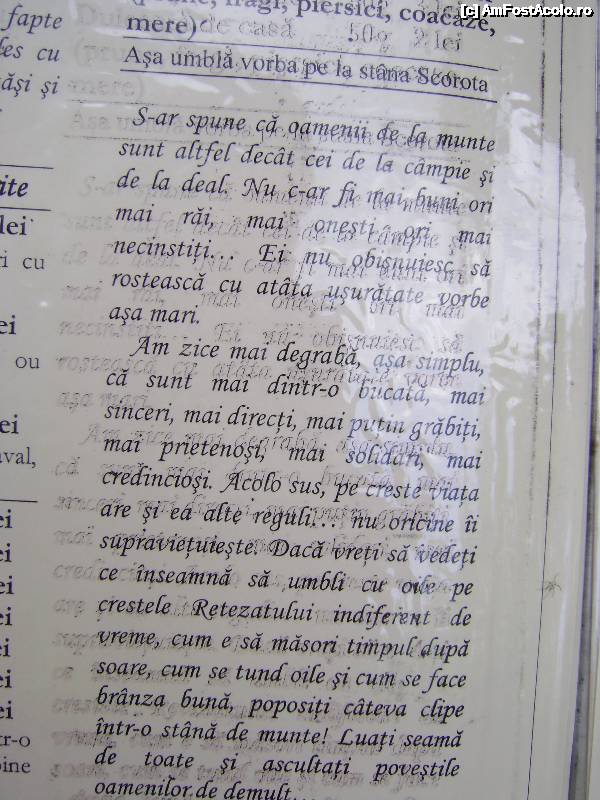 [c] AmFostAcolo.ro
fragi, piersici, coacăze,
mere) de casă 50g 2 lei
Așa umblă vorba pe la stâna Scorota
S-ar spune că oamenii de la munte
sunt altfel decât cei de la câmpie și
de la deal. Nu c-ar fi mai buni ori
mai răi, mai onești ori mai
necinstiți... Ei nu obișnuiesc să
rostească cu atâta ușurătate vorbe
așa mari.
Am zice mai degrabă, așa simplu,
că sunt mai dintr-o bucată, mai
sinceri, mai direcți, mai puțin grăbiți,
mai prietenoși, mai solidari, mai
credincioși. Acolo sus, pe creste viața
are și ea alte reguli... nu oricine îi
supraviețuiește. Dacă vreți să vedeți
ce înseamnă să umbli cu oile pe
crestele Retezatului indiferent de
vreme, cum e să măsori timpul după
soare, cum se tund oile și cum se face
brânza bună, poposiți câteva clipe
într-o stână de munte! Luați seamă
de toate și ascultați poveștile
oamenilor de demult...
fapte
cu
și
lei
cu
ou